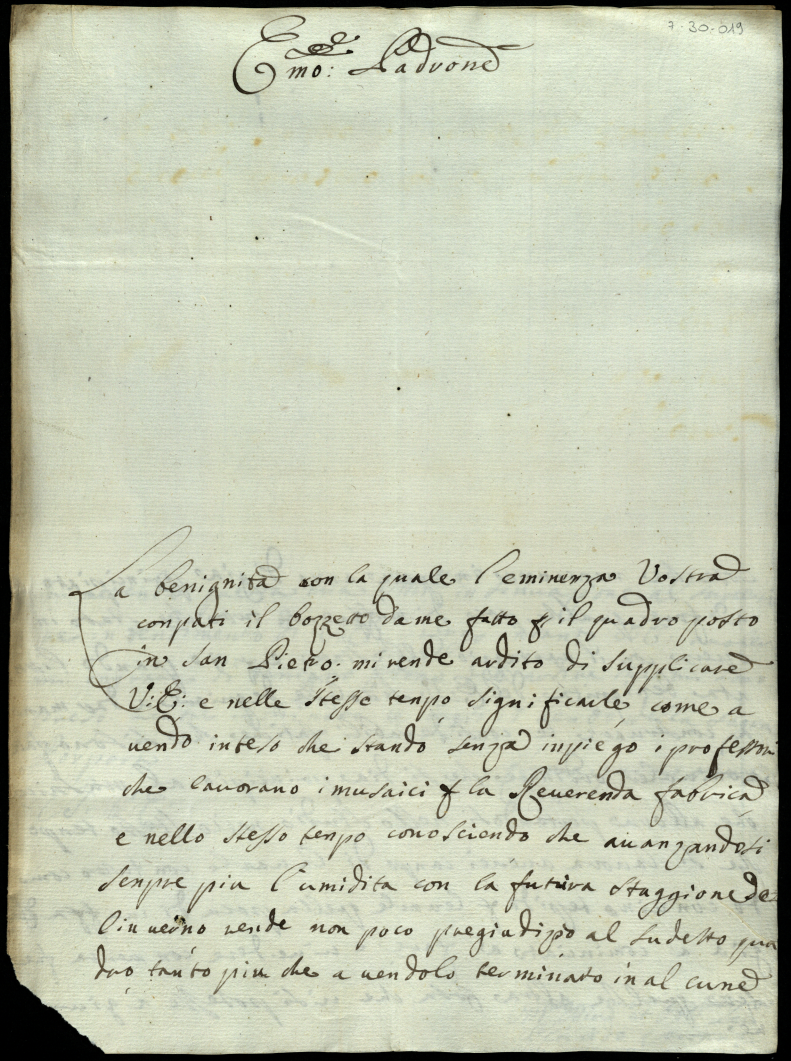 7-30-019
Emo: Padrone
La benignita con la quale l'eminenza Vostra
conpati il bozzetto da me fatto p il quadro posto
in san Pietro. mi rende ardito di supplicare
V: E: e nelle stesso tenpo significarle come a
uendo inteso che stando senza inpiego i professori
che lauorano i musaici p la Reuerenda fabrica
e nello stesso tenpo conosciendo che auanzandosi
senpre piu l'umidita con la futura staggione de
linuerno rende non poco pregiudizio al sudetto qua
dro tanto piu che auendolo terminato in alcune